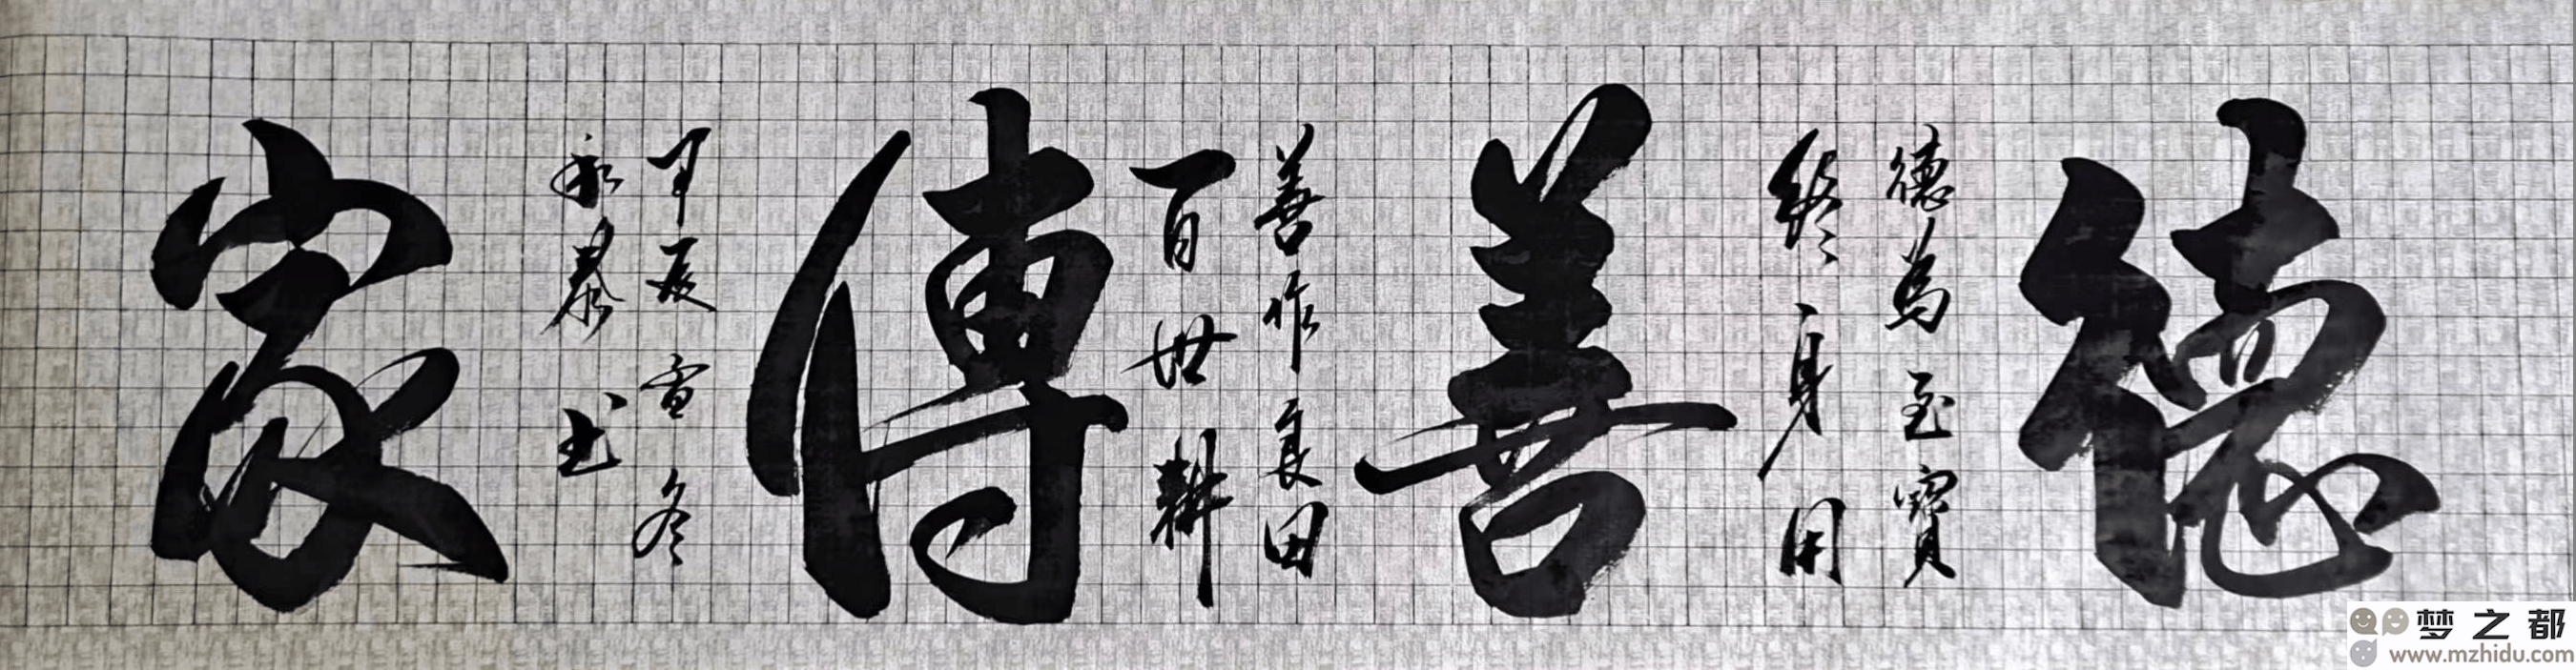 德
德為至寶
終身用
善
善作良田
百世耕
傳
甲辰雪冬
永慕书
家
梦之都
www.mzhidu.com